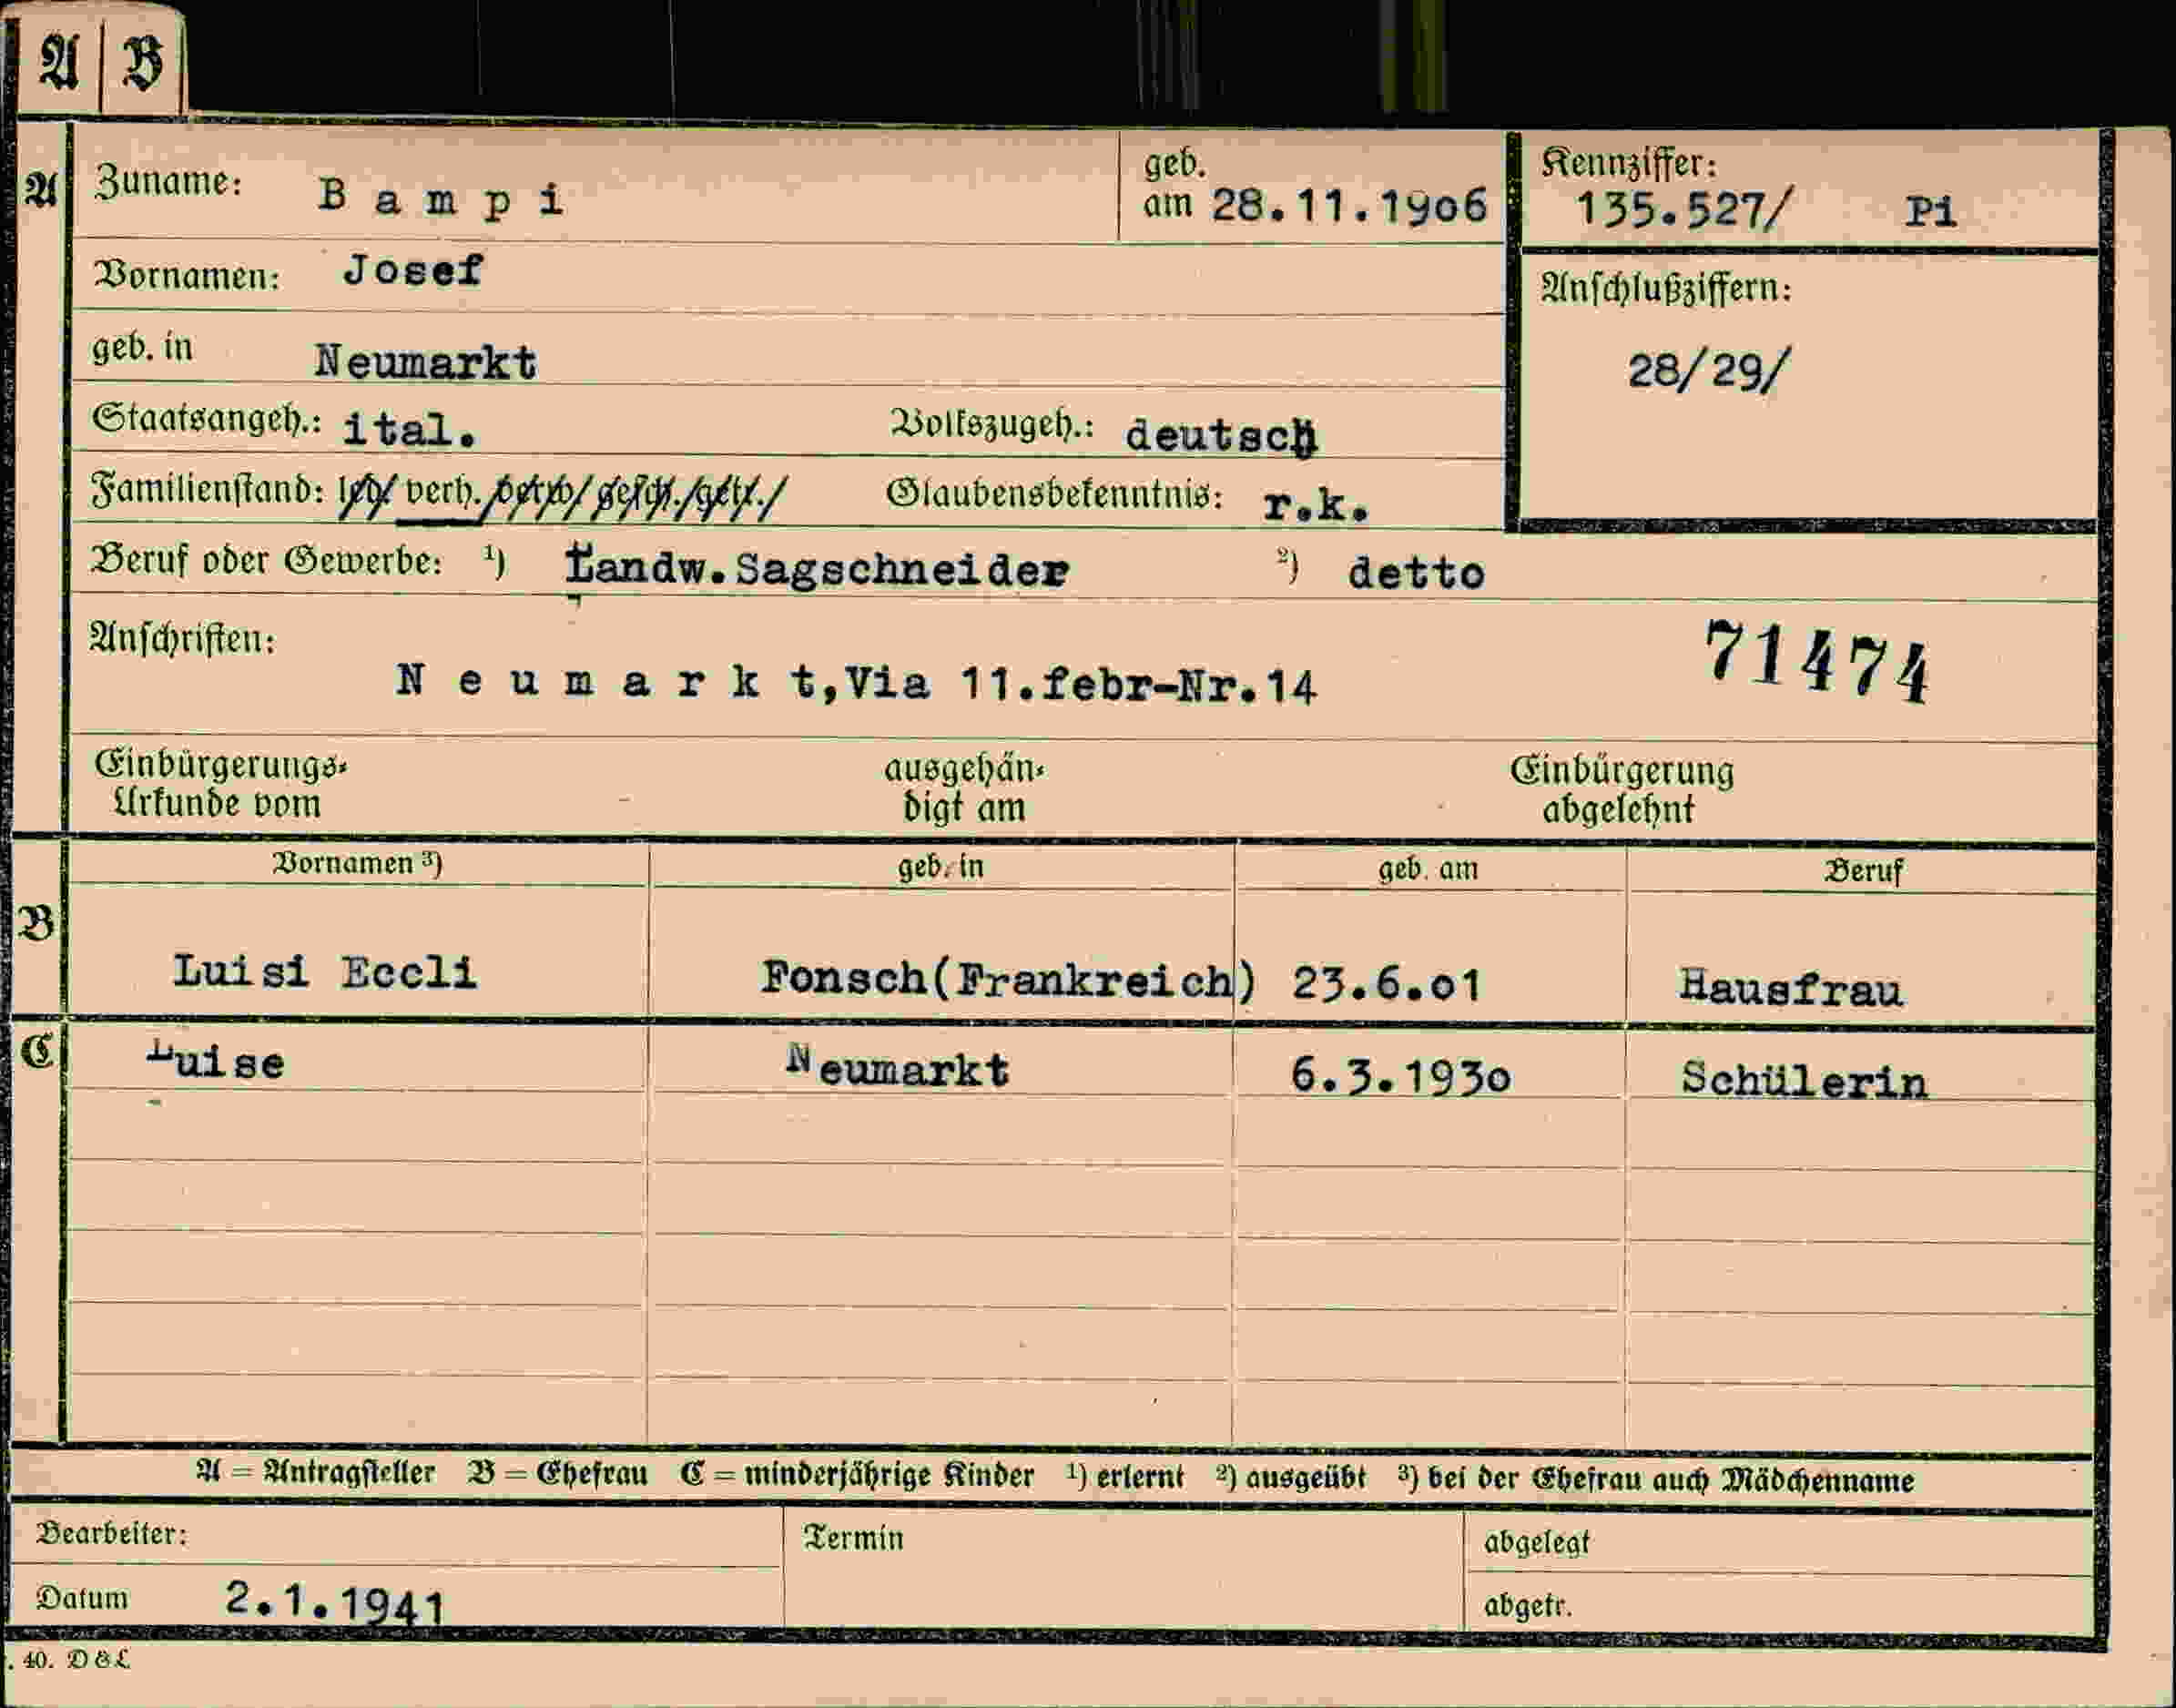 A B
A Zuname: B a m p i geb. am 28.11.1906 Kennziffer: 135.527/ Pi
Vornamen: Josef
Anschlußziffern:
geb. in Neumarkt
28/29/
Staatsangeh.: ital. Volkszugeh.: deutsch
Familienstand: led/ verh./verw/ gesch./getr./ Glaubensbekenntnis: r.k.
Beruf oder Gewerbe: ¹) Landw.Sagschneider ²) detto
Anschriften:
N e u m a r k t,Via 11.febr-Nr.14 71474
Einbürgerungs- ausgehän- Einbürgerung
Urkunde vom digt am abgelehnt
Vornamen ³) geb. in geb. am Beruf
B
Luisi Eccli Fonsch(Frankreich) 23.6.01 Hausfrau
C Luise Neumarkt 6.3.1930 Schülerin
A = Antragsteller B = Ehefrau C = minderjährige Kinder ¹) erlernt ²) ausgeübt ³) bei der Ehefrau auch Mädchenname
Bearbeiter: Termin abgelegt
Datum 2.1.1941 abgetr.
. 40. D & L